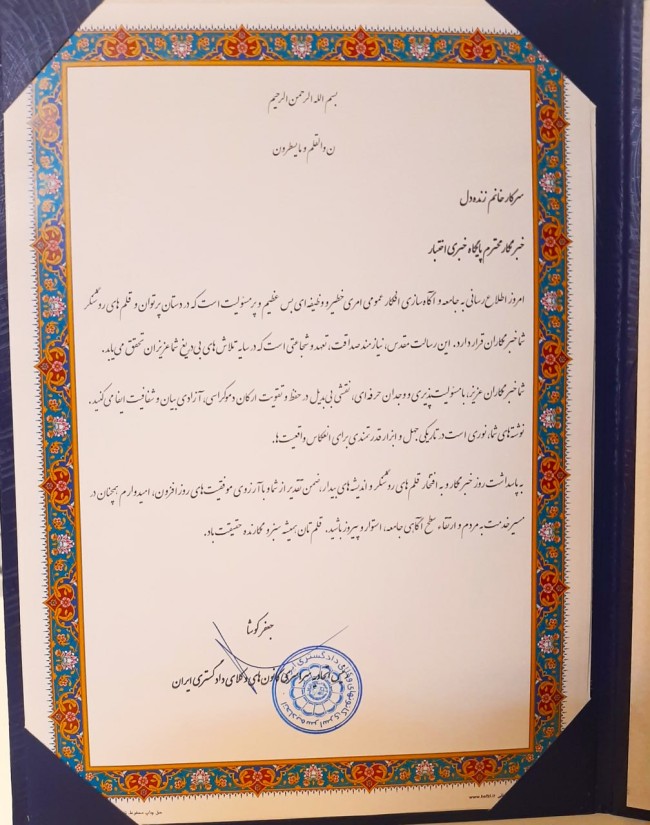 بسم الله الرحمن الرحیم
ن والقلم و مایسطرون
سرکار خانم زنده‌دل
خبرنگار محترم پایگاه خبری اختبار
امروز اطلاع رسانی به جامعه و آگاه سازی افکار عمومی امری خطیر و وظیفه ای بس عظیم و پر مسئولیت است که در دستان پرتوان و قلم های روشنگر
شما خبرنگاران قرار دارد. این رسالت مقدس، نیازمند صداقت، تعهد و شجاعتی است که در سایه تلاش های بی دریغ شما عزیزان تحقق می یابد.
شما خبرنگاران عزیز، با مسئولیت پذیری و وجدان حرفه ای، نقشی بی بدیل در حفظ و تقویت ارکان دموکراسی، آزادی بیان و شفافیت ایفا می کنید.
نوشته های شما، نوری است در تاریکی جهل و ابزار قدرتمندی برای انعکاس واقعیت ها.
به پاسداشت روز خبرنگار و به افتخار قلم های روشنگر و اندیشه های بیدار، ضمن تقدیر از شما و با آرزوی موفقیت های روز افزون، امیدوارم همچنان در
مسیر خدمت به مردم و ارتقاء سطح آگاهی جامعه، استوار و پیروز باشید. قلم تان همیشه سبز و نگارنده حقیقت باد.
جعفر کوشا
رئیس اتحادیه سراسری کانون های وکلای دادگستری ایران
اتحادیه سراسری کانونهای وکلای دادگستری ایران